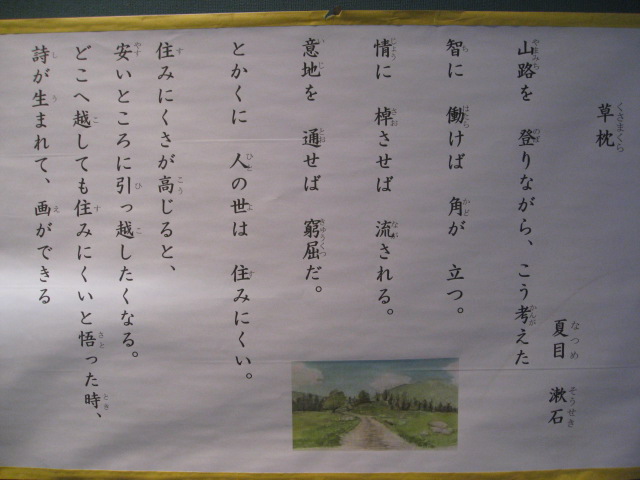 草枕
夏目 漱石
山路を 登りながら、こう考えた
智に 働けば 角が 立つ。
情に 棹させば 流される。
意地を 通せば 窮屈だ。
とかくに 人の世は 住みにくい。
住みにくさが高じると、
安いところに引っ越したくなる。
どこへ越しても住みにくいと悟った時、
詩が生まれて、画ができる